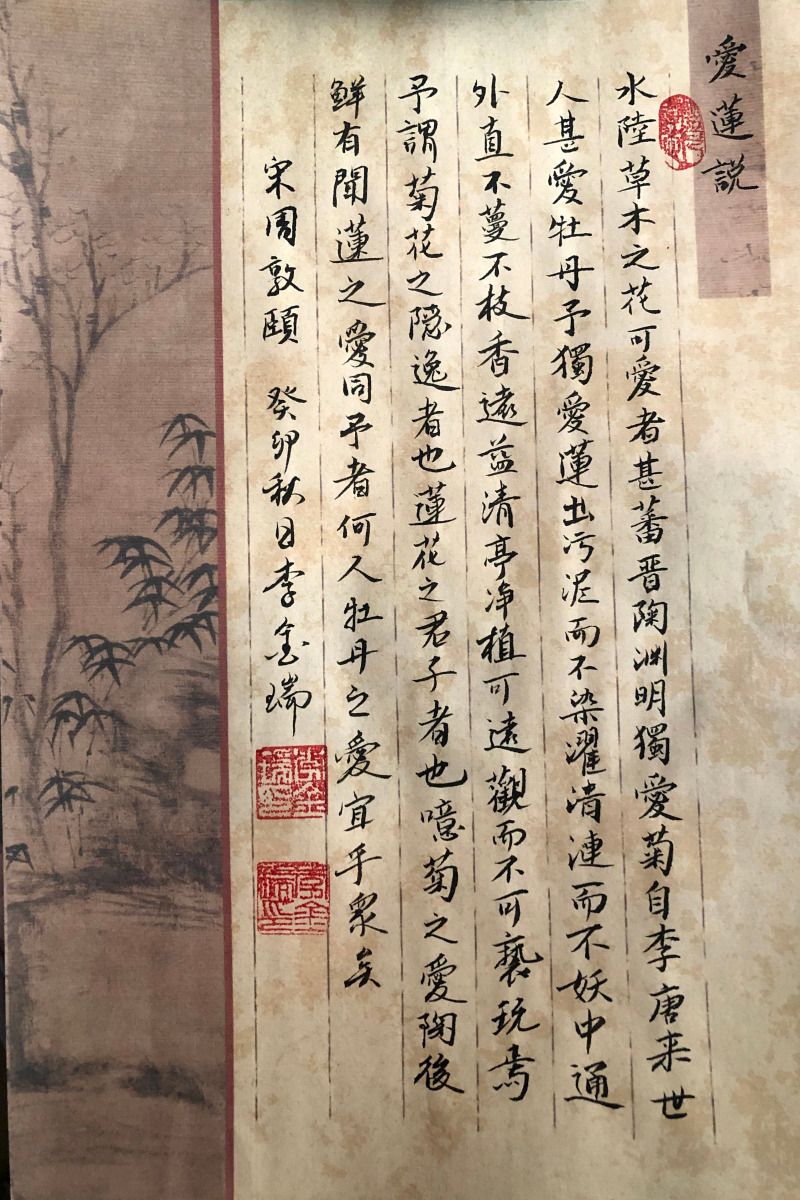 愛蓮説
水陸草木之花可愛者甚蕃晋陶渊明獨愛菊自李唐来世
人甚愛牡丹予獨愛蓮出污泥而不染濯清漣而不妖中通
外直不蔓不枝香遠益清亭净植可遠觀而不可褻玩焉
予謂菊花之隐逸者也蓮花之君子者也噫菊之愛陶後
鮮有聞蓮之愛同予者何人牡丹之愛宜乎衆矣
宋周敦頤 癸卯秋日李金瑞